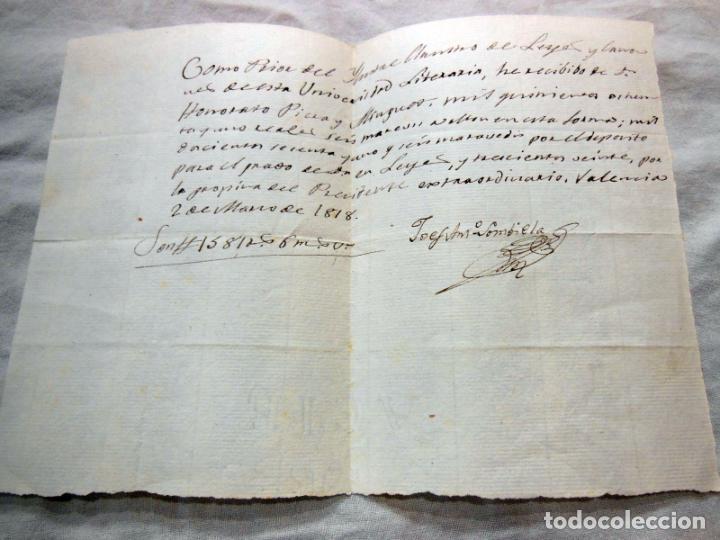 Como Prior del Ilustre Claustro de Leyes y Cano
nes de esta Universidad Literaria, he recibido de D.
Honorato Piera y Minguet, mil quinientos ochen
ta y uno reales seis maraves. vellon en esta forma; mil
docientos sesenta y uno y seis maravedis por el deposito
para el grado de en Leyes, y trescientos veinte, por
la propina del Presidente extraordinario. Valencia
2 de Marzo de 1818.
Son 1581 r.s 6 m.s v.n
Josef Ant.o Sombiela
Prior
todocoleccion.net